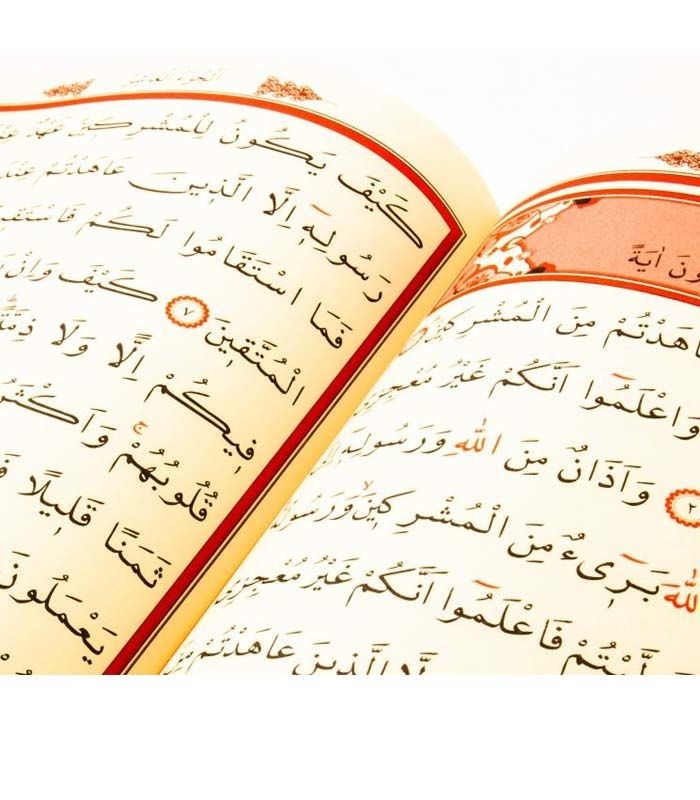 ونَ اٰيَةً
مِنَ الْمُشْرِكٖينَ
وَاعْلَمُٓوا اَنَّكُمْ غَيْرُ مُعْجِزِي
٢ وَاَذَانٌ مِنَ اللّٰهِ وَرَسُولِهٖٓ
اللّٰهَ بَرٖٓيءٌ مِنَ الْمُشْرِكٖينَۙ وَرَسُولُهُ
فَاعْلَمُٓوا اَنَّكُمْ غَيْرُ مُعْجِزِي
الَّذٖينَ عَاهَدْتُمْ مِنَ
اَلْجُزْءُ الْعَاشِرُ
كَيْفَ يَكُونُ لِلْمُشْرِكٖينَ عَهْدٌ عِنْدَ
رَسُولِهٖٓ اِلَّا الَّذٖينَ عَاهَدْتُمْ عِنْدَ
فَمَا اسْتَقَامُوا لَكُمْ فَاسْتَقٖيمُوا
الْمُتَّقٖينَ ٧ كَيْفَ وَاِنْ
فٖيكُمْ اِلًّا وَلَا ذِمَّةً
قُلُوبُهُمْۚ وَاَكْثَرُ
ثَمَنًا قَلٖيلًا
يَعْمَلُونَ